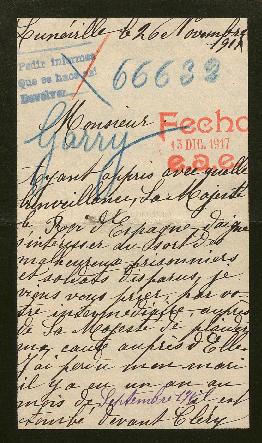 Lunéville le 26 Novembre
1917
Pedir informes
Que se haga así
Devolver
66632
Garry
Monsieur
Fecha
13 DIC. 1917
e.a.e.
Ayant appris avec quelle
bienveillance, Sa Majesté
le Roi d'Espagne, daigne
s'intéresser au sort des
malheureux prisonniers
et soldats disparus, je
viens vous prier, par vo-
tre intermédiaire, auprès
de Sa Majesté de plaider
ma cause auprès d'Elle
J'ai perdu mon mari
il y a eu un an au
mois de Septembre 1916 est
tombé devant Cléry